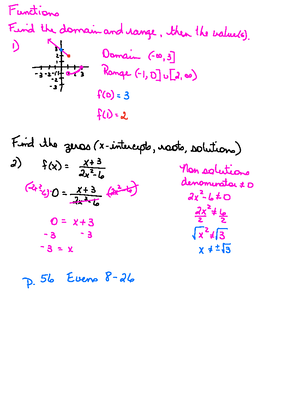 Functions
Find the domain and range, then the value(s).
1)
Domain (-∞, 3]
Range (-1, 0] ∪ [2, ∞)
f(0) = 3
f(1) = 2
Find the zeros (x-intercepts, roots, solutions)
2) f(x) = x+3 / 2x²-6
0 = x+3 / 2x²-6 (2x²-6)
0 = x+3
-3 -3
-3 = x
Non solutions
denominator ≠ 0
2x²-6 ≠ 0
2x²/2 ≠ 6/2
√x² ≠ √3
x ≠ ±√3
p. 56 Evens 8-26